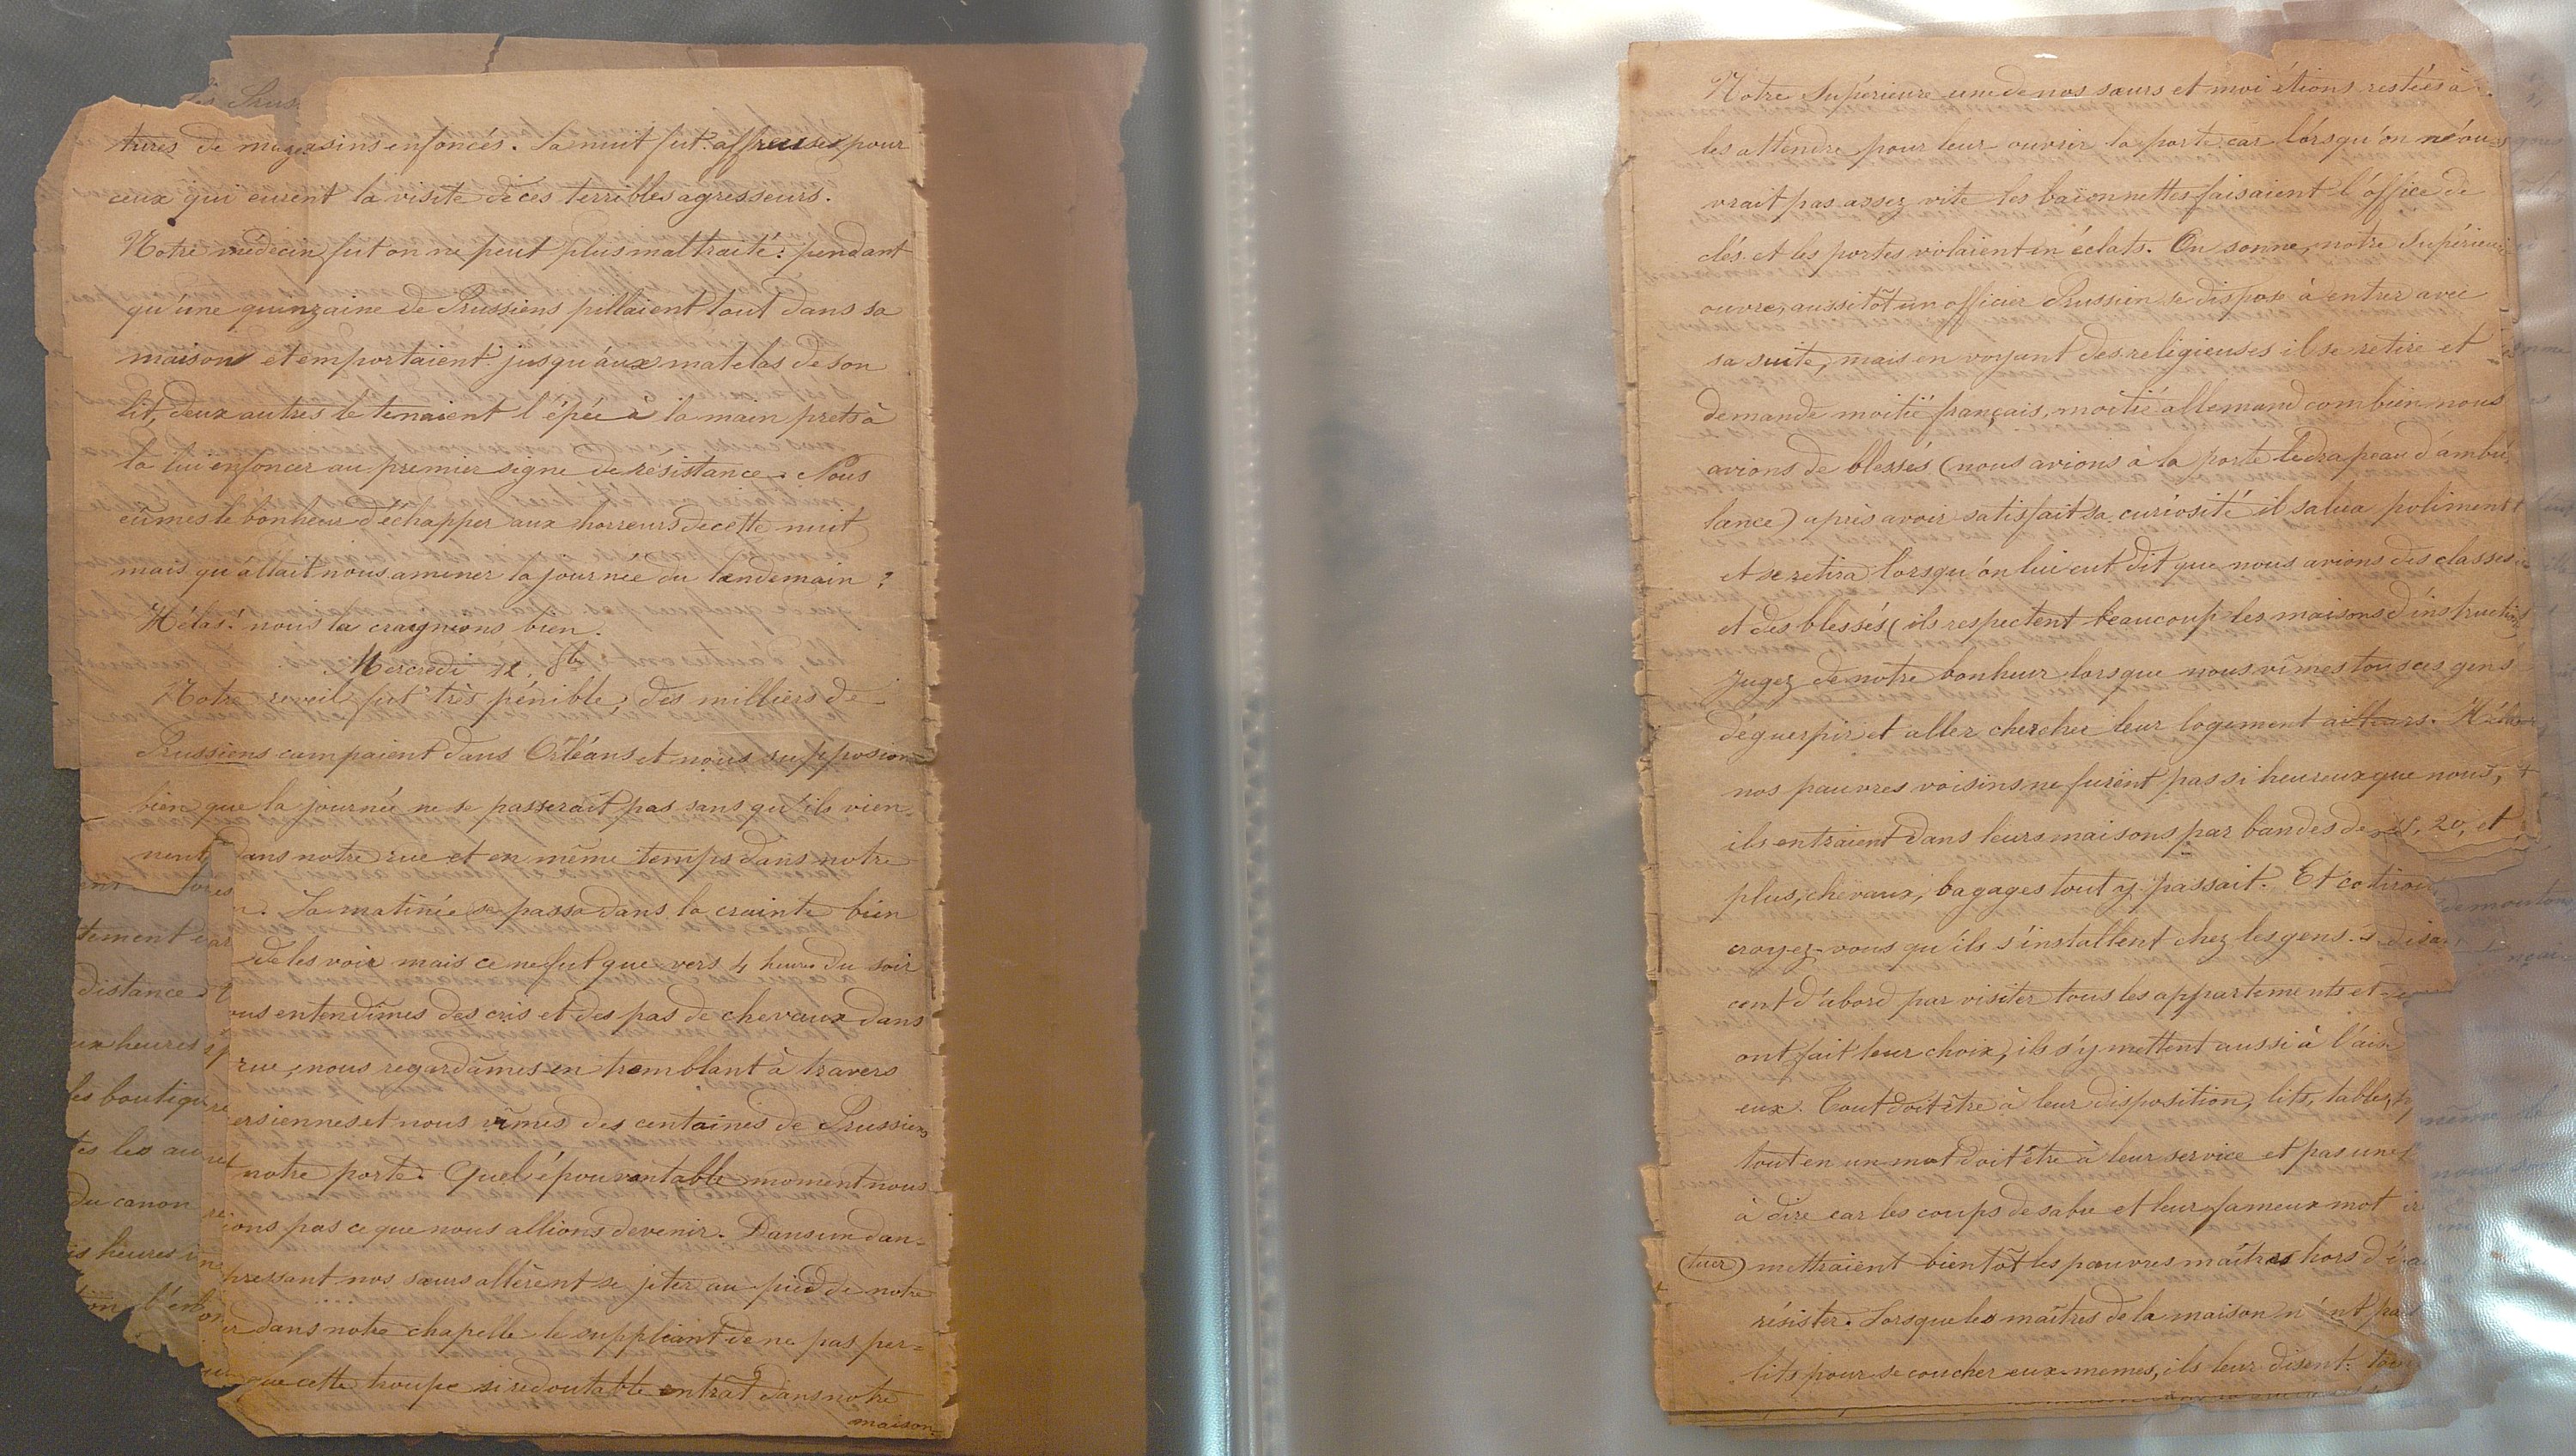 tures de magasins enfoncés. La nuit fut affreuse pour
ceux qui eurent la visite de ces terribles agresseurs.
Notre médecin fut on ne peut plus maltraité: pendant
qu'une quinzaine de Prussiens pillaient tout dans sa
maison et emportaient jusqu'aux matelas de son
lit, deux autres le tenaient l'épée à la main prets à
la lui enfoncer au premier signe de résistance. Nous
eûmes le bonheur d'échapper aux horreurs de cette nuit
mais qu'allait nous amener la journée du lendemain?
Hélas! nous la craignions bien.
Mercredi 12. 8bre
Notre reveil fut très pénible, des milliers de
Prussiens campaient dans Orléans et nous supposions
bien que la journée ne se passerait pas sans qu'ils vien-
nent dans notre rue et en même temps dans notre
La matinée se passa dans la crainte bien
de les voir mais ce ne fut que vers 4 heures du soir
ous entendîmes des cris et des pas de chevaux dans
rue, nous regardâmes en tremblant à travers
ersiennes et nous vîmes des centaines de Prussiens
notre porte. Quel épouvantable moment nous
ions pas ce que nous allions devenir. Dans un dan-
pressant nos sœurs allèrent se jeter au pied de notre
dans notre chapelle le suppliant de ne pas per-
que cette troupe si redoutable entrât dans notre
maison
tement car
distance
ux heures
les boutiqu
tes les au
du canon
is heures
Notre Supérieure une de nos sœurs et moi étions restées à
les attendre pour leur ouvrir la porte car lorsqu'on n'ou-
vrait pas assez vite les baïonnettes faisaient l'office de
clés et les portes volaient en éclats. On sonne, notre Supérieure
ouvre, aussitôt un officier Prussien se dispose à entrer avec
sa suite, mais en voyant des religieuses il se retire et
demande moitié français, moitié allemand combien nous
avions de blessés (nous avions à la porte le drapeau d'ambu-
lance) après avoir satisfait sa curiosité il salua poliment
et se retira lorsqu'on lui eut dit que nous avions des classes
et des blessés (ils respectent beaucoup les maisons d'instruction
Jugez de notre bonheur lorsque nous vîmes tous ces gens
déguerpir et aller chercher leur logement ailleurs. Hélas
nos pauvres voisins ne furent pas si heureux que nous,
ils entraient dans leurs maisons par bandes de 15, 20, et
plus, chevaux, bagages tout y passait. Et
croyez-vous qu'ils s'installent chez les gens
cent d'abord par visiter tous les appartements et
ont fait leur choix, ils s'y mettent aussi à l'aise
eux. Tout doit être à leur disposition, lits, tables,
tout en un mot doit être à leur service et pas un
à dire car les coups de sabre et leur fameux mot
(tuer) mettraient bientôt les pauvres maîtres hors d'
résister. Lorsque les maîtres de la maison n'ont pas
lits pour se coucher eux-memes, ils leur disent: